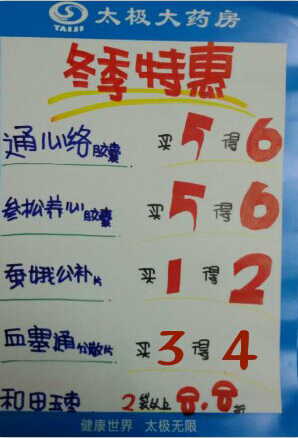 太极大药房
TAIJI
冬季特惠
通心络胶囊 买5得6
参松养心胶囊 买5得6
蚕娥公补片 买1得2
血塞通分散片 买3得4
和田玉枣 2袋以上8.8折
健康世界 太极无限